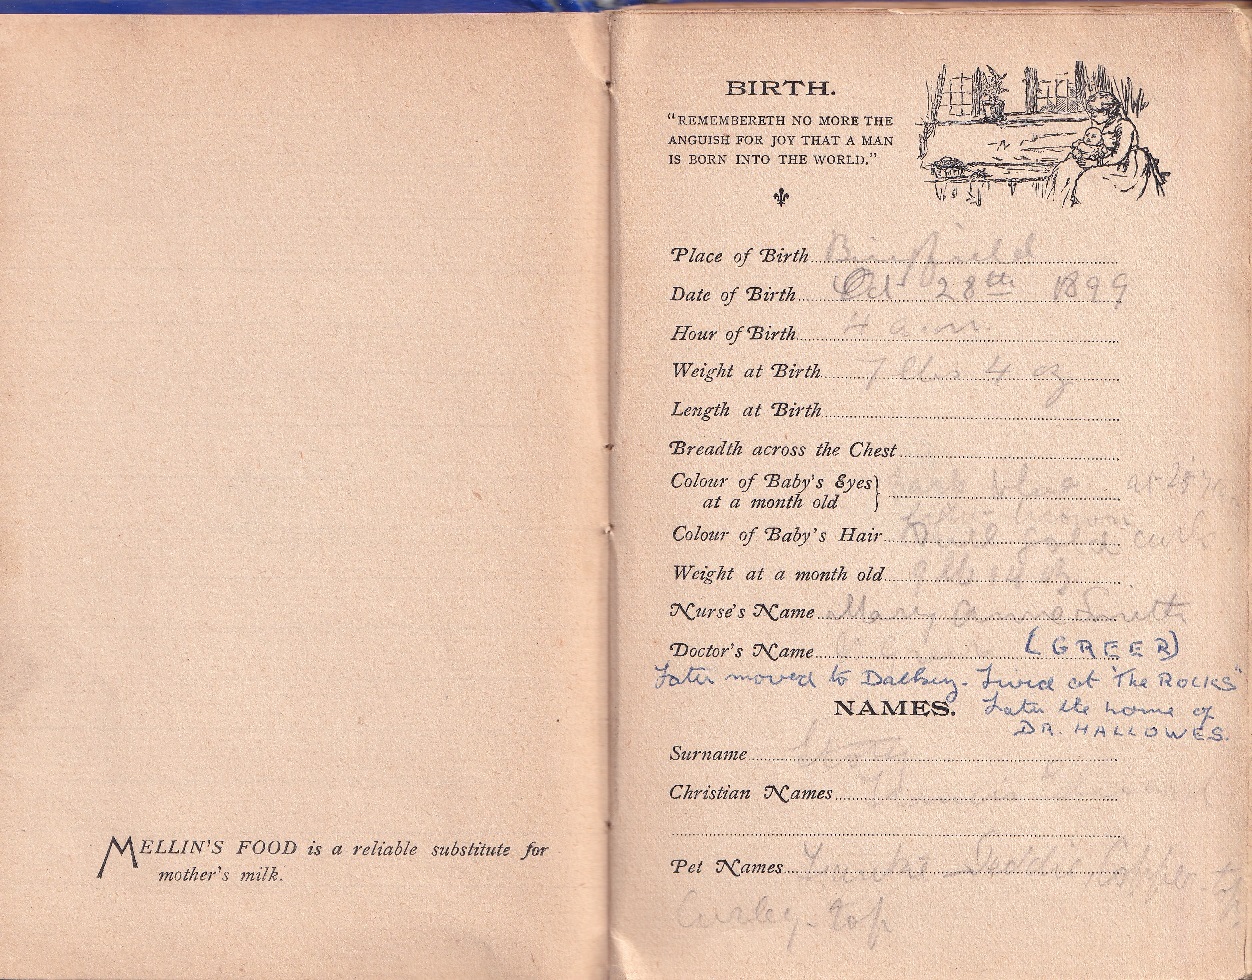 MELLIN'S FOOD is a reliable substitute for
mother's milk.
BIRTH.
"REMEMBERETH NO MORE THE
ANGUISH FOR JOY THAT A MAN
IS BORN INTO THE WORLD."
Place of Birth Binfield
Date of Birth Oct 28th 1899
Hour of Birth 4 a.m.
Weight at Birth 7 lbs 4 oz
Length at Birth
Breadth across the Chest
Colour of Baby's Eyes dark blue at
at a month old
Colour of Baby's Hair gold curls.
Weight at a month old 9 lb 14 oz
Nurse's Name Mary Anne Smith
Doctor's Name (GREER)
Later moved to Dalkey. Lived at "The ROCKS"
NAMES. Later the home of
DR. HALLOWES.
Surname
Christian Names
Pet Names Copper-top
Curley-top